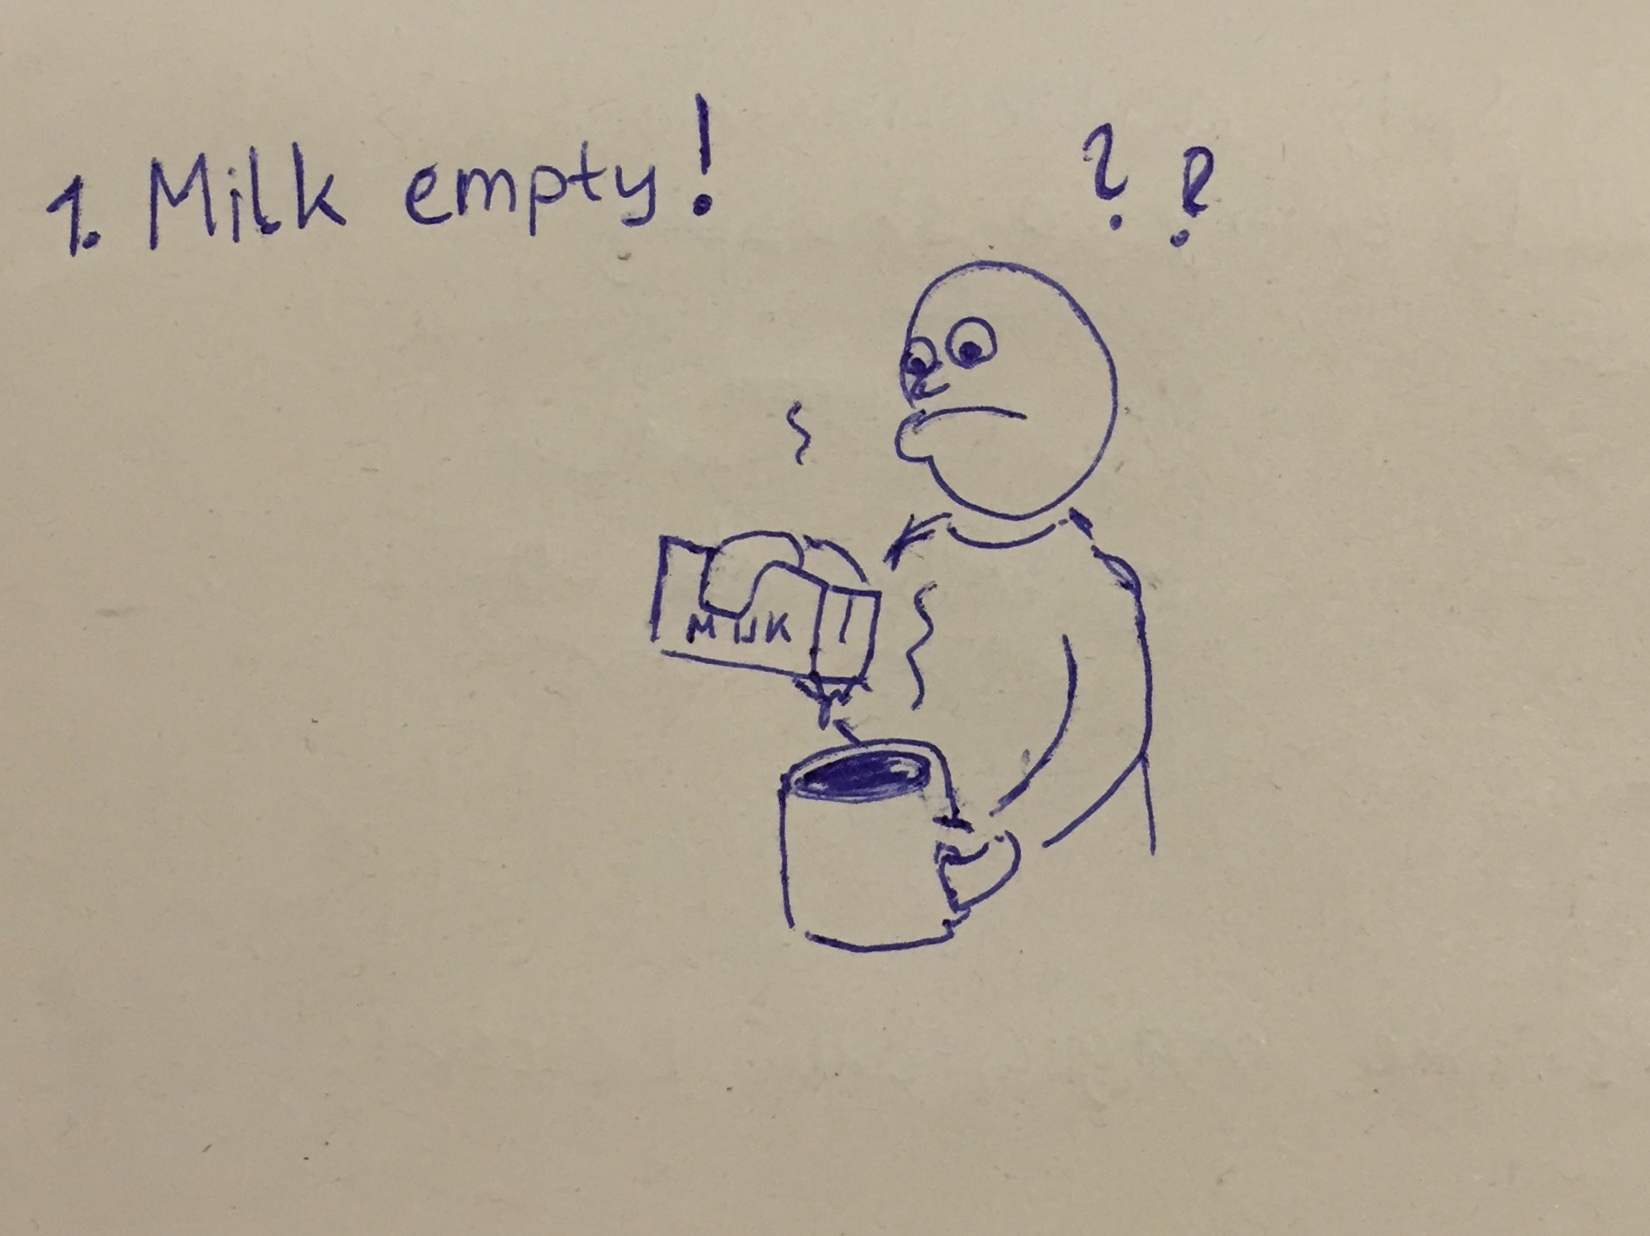 1. Milk empty!
? ?
MILK